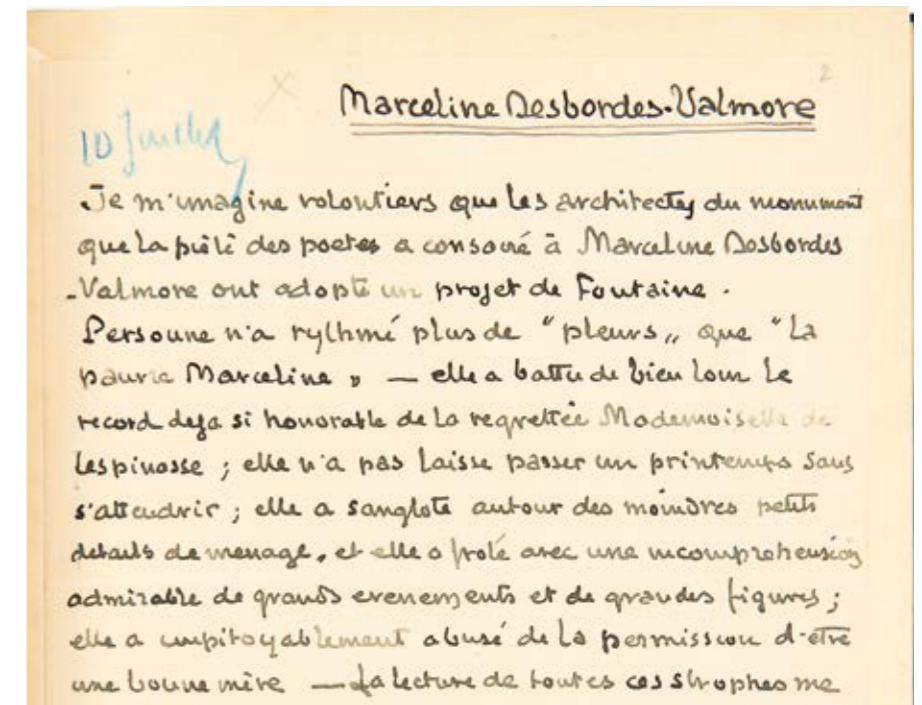 2
Marceline Desbordes-Valmore
10 Juillet
Je m'imagine volontiers que les architectes du monument
que la piété des poetes a consacré à Marceline Desbordes
-Valmore ont adopté un projet de Fontaine.
Personne n'a rythmé plus de "pleurs" que "La
pauvre Marceline" — elle a battu de bien loin le
record deja si honorable de la regrettée Mademoiselle de
Lespinasse ; elle n'a pas laissé passer un printemps sans
s'attendrir ; elle a sangloté autour des moindres petits
details de menage, et elle a frolé avec une incomprehension
admirable de grands evenements et de grandes figures ;
elle a impitoyablement abusé de la permission d'être
une bonne mère — La lecture de toutes ces strophes me